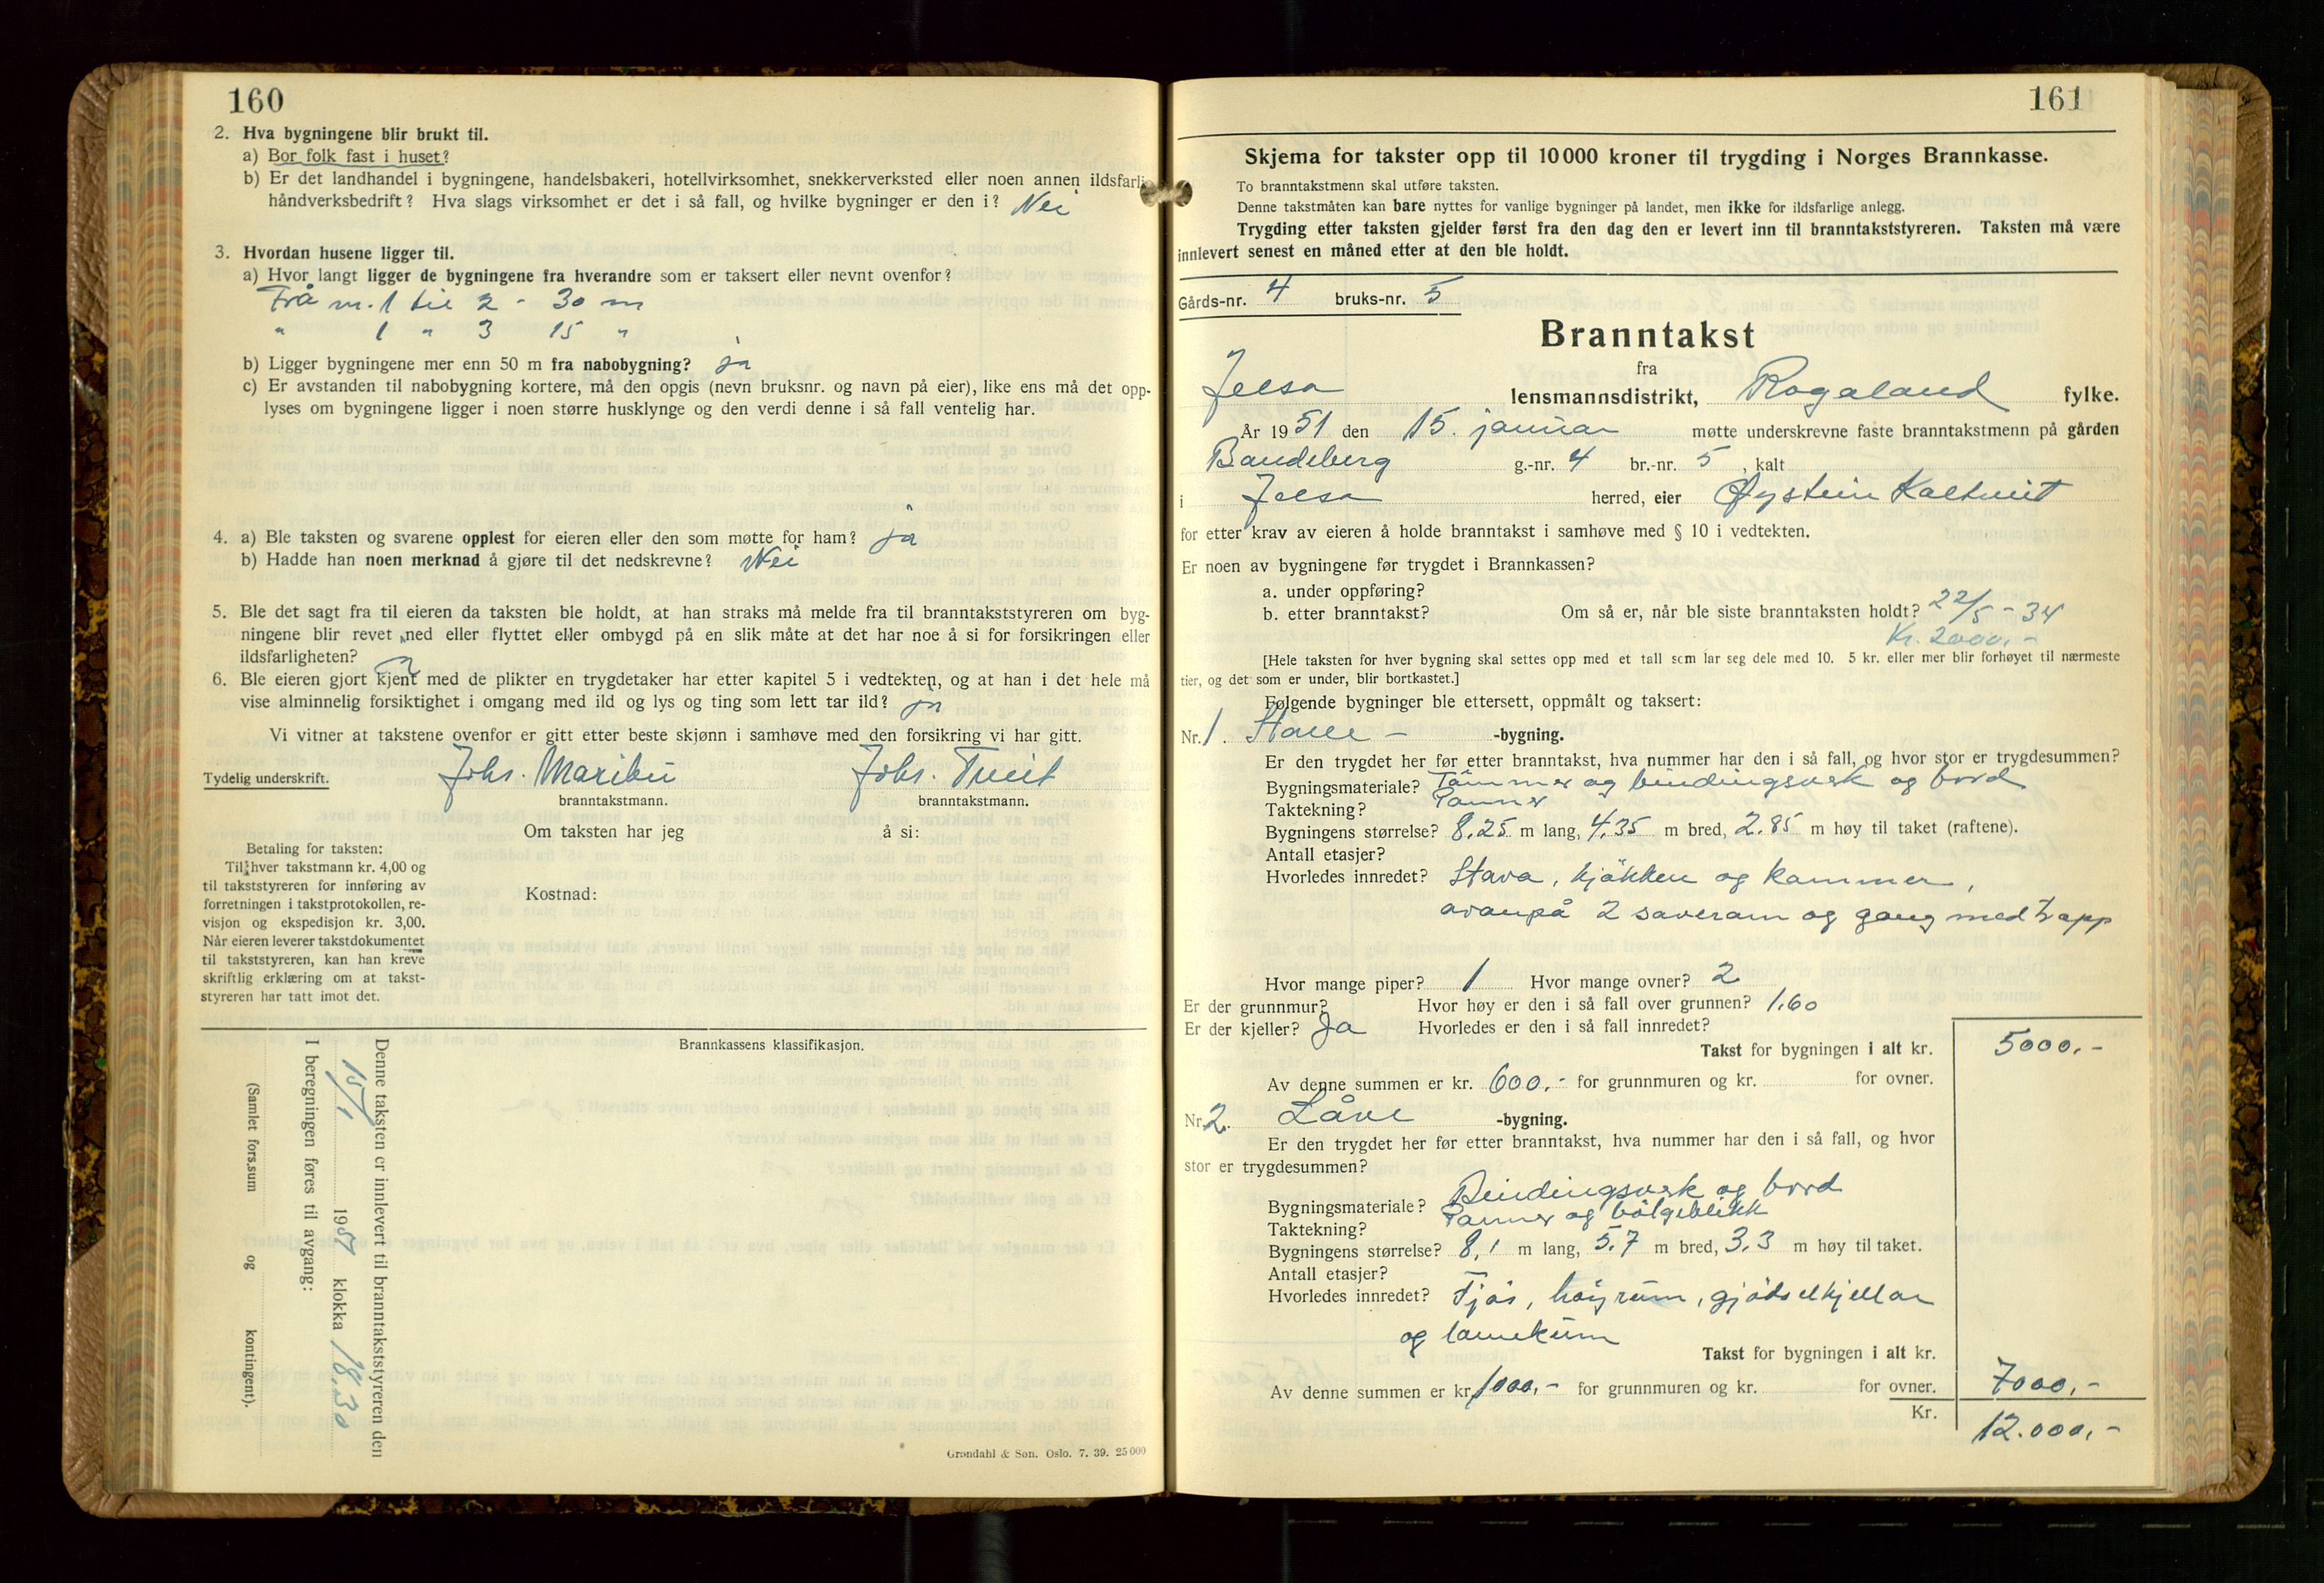 160
2. Hva bygningene blir brukt til.
a) Bor folk fast i huset?
b) Er det landhandel i bygningene, handelsbakeri, hotellvirksomhet, snekkerverksted eller noen annen ildsfarlig
håndverksbedrift? Hva slags virksomhet er det i så fall, og hvilke bygninger er den i? Nei
3. Hvordan husene ligger til.
a) Hvor langt ligger de bygningene fra hverandre som er taksert eller nevnt ovenfor?
Frå nr. 1 til 2 - 30 m
" 1 " 3 15 "
b) Ligger bygningene mer enn 50 m fra nabobygning? ja
c) Er avstanden til nabobygning kortere, må den opgis (nevn bruksnr. og navn på eier), like ens må det opp-
lyses om bygningene ligger i noen større husklynge og den verdi denne i så fall ventelig har.
4. a) Ble taksten og svarene opplest for eieren eller den som møtte for ham? ja
b) Hadde han noen merknad å gjøre til det nedskrevne? Nei
5. Ble det sagt fra til eieren da taksten ble holdt, at han straks må melde fra til branntakststyreren om byg-
ningene blir revet ned eller flyttet eller ombygd på en slik måte at det har noe å si for forsikringen eller
ildsfarligheten? ja
6. Ble eieren gjort kjent med de plikter en trygdetaker har etter kapitel 5 i vedtekten, og at han i det hele må
vise alminnelig forsiktighet i omgang med ild og lys og ting som lett tar ild? ja
Vi vitner at takstene ovenfor er gitt etter beste skjønn i samhøve med den forsikring vi har gitt.
Tydelig underskrift. Johs. Maribu Johs. Tveit
branntakstmann. branntakstmann.
Om taksten har jeg å si:
Betaling for taksten:
Til hver takstmann kr. 4,00 og
til takststyreren for innføring av
forretningen i takstprotokollen, re-
visjon og ekspedisjon kr. 3,00.
Når eieren leverer takstdokumentet
til takststyreren, kan han kreve
skriftlig erklæring om at takst-
styreren har tatt imot det.
Kostnad:
Brannkassens klassifikasjon.
Denne taksten er innlevert til branntakststyreren den
15/1 1951 klokka 18.30
I beregningen føres til avgang:
(Samlet fors.sum og kontingent).
Grøndahl & Søn. Oslo. 7. 39. 25 000
161
Skjema for takster opp til 10 000 kroner til trygding i Norges Brannkasse.
To branntakstmenn skal utføre taksten.
Denne takstmåten kan bare nyttes for vanlige bygninger på landet, men ikke for ildsfarlige anlegg.
Trygding etter taksten gjelder først fra den dag den er levert inn til branntakststyreren. Taksten må være
innlevert senest en måned etter at den ble holdt.
Gårds-nr. 4 bruks-nr. 5
Branntakst
fra
Jelsa lensmannsdistrikt, Rogaland fylke.
År 1951 den 15. januar møtte underskrevne faste branntakstmenn på gården
Bandeberg g.-nr. 4 br.-nr. 5, kalt
i Jelsa herred, eier Øystein Kaltveit
for etter krav av eieren å holde branntakst i samhøve med § 10 i vedtekten.
Er noen av bygningene før trygdet i Brannkassen?
a. under oppføring?
b. etter branntakst? Om så er, når ble siste branntaksten holdt? 22/5 - 34
Kr. 2000,-
[Hele taksten for hver bygning skal settes opp med et tall som lar seg dele med 10. 5 kr. eller mer blir forhøyet til nærmeste
tier, og det som er under, blir bortkastet.]
Følgende bygninger ble ettersett, oppmålt og taksert:
Nr. 1. -bygning.
Er den trygdet her før etter branntakst, hva nummer har den i så fall, og hvor stor er trygdesummen?
Bygningsmateriale? Tømmer og bindingsverk og bord
Taktekning? Panner
Bygningens størrelse? 8.25 m lang, 4.35 m bred, 2.85 m høy til taket (raftene).
Antall etasjer?
Hvorledes innredet? Stova, kjøkken og kammer,
ovanpå 2 soverom og gang med trapp
Hvor mange piper? 1 Hvor mange ovner? 2
Er der grunnmur? Hvor høy er den i så fall over grunnen? 1.60
Er der kjeller? Ja Hvorledes er den i så fall innredet?
Takst for bygningen i alt kr. 5000.-
Av denne summen er kr. 600,- for grunnmuren og kr. for ovner.
Nr. 2. Låve -bygning.
Er den trygdet her før etter branntakst, hva nummer har den i så fall, og hvor
stor er trygdesummen?
Bygningsmateriale? Bindingsverk og bord
Taktekning? Panner og bølgeblikk
Bygningens størrelse? 8,1 m lang, 5.7 m bred, 3.3 m høy til taket.
Antall etasjer?
Hvorledes innredet? Fjøs, høyrum, gjødselkjellar
og
Takst for bygningen i alt kr.
Av denne summen er kr. 1000,- for grunnmuren og kr. for ovner. 7000,-
Kr. 12.000,-